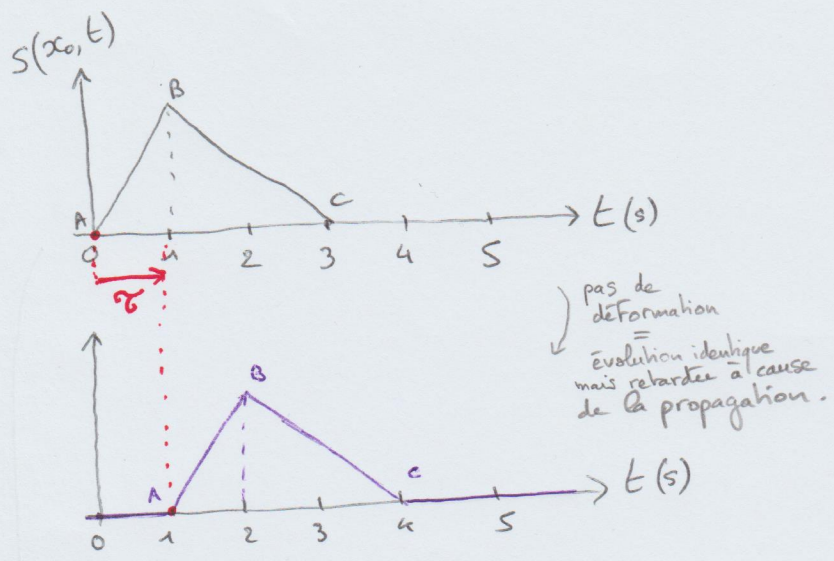 S(x₀, t)
B
A
C
t(s)
0 1 2 3 4 5
τ
pas de
déformation
=
évolution identique
mais retardée à cause
de la propagation.
B
A
C
t(s)
0 1 2 3 4 5